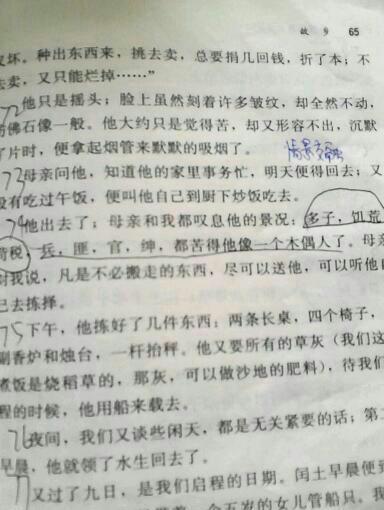 故乡 65
坏。种出东西来，挑去卖，总要捐几回钱，折了本；不
去卖，又只能烂掉……”
72他只是摇头；脸上虽然刻着许多皱纹，却全然不动，
佛石像一般。他大约只是觉得苦，却又形容不出，沉默
了片时，便拿起烟管来默默的吸烟了。
73母亲问他，知道他的家里事务忙，明天便得回去；又
没有吃过午饭，便叫他自己到厨下炒饭吃去。
74他出去了；母亲和我都叹息他的景况：多子，饥荒，
苛税，兵，匪，官，绅，都苦得他像一个木偶人了。母亲
对我说，凡是不必搬走的东西，尽可以送他，可以听他自
己去拣择。
75下午，他拣好了几件东西：两条长桌，四个椅子，
副香炉和烛台，一杆抬秤。他又要所有的草灰（我们这
煮饭是烧稻草的，那灰，可以做沙地的肥料），待我们
程的时候，他用船来载去。
76夜间，我们又谈些闲天，都是无关紧要的话；第二
早晨，他就领了水生回去了。
77又过了九日，是我们启程的日期。闰土早晨便到
一个五岁的女儿管船只。我